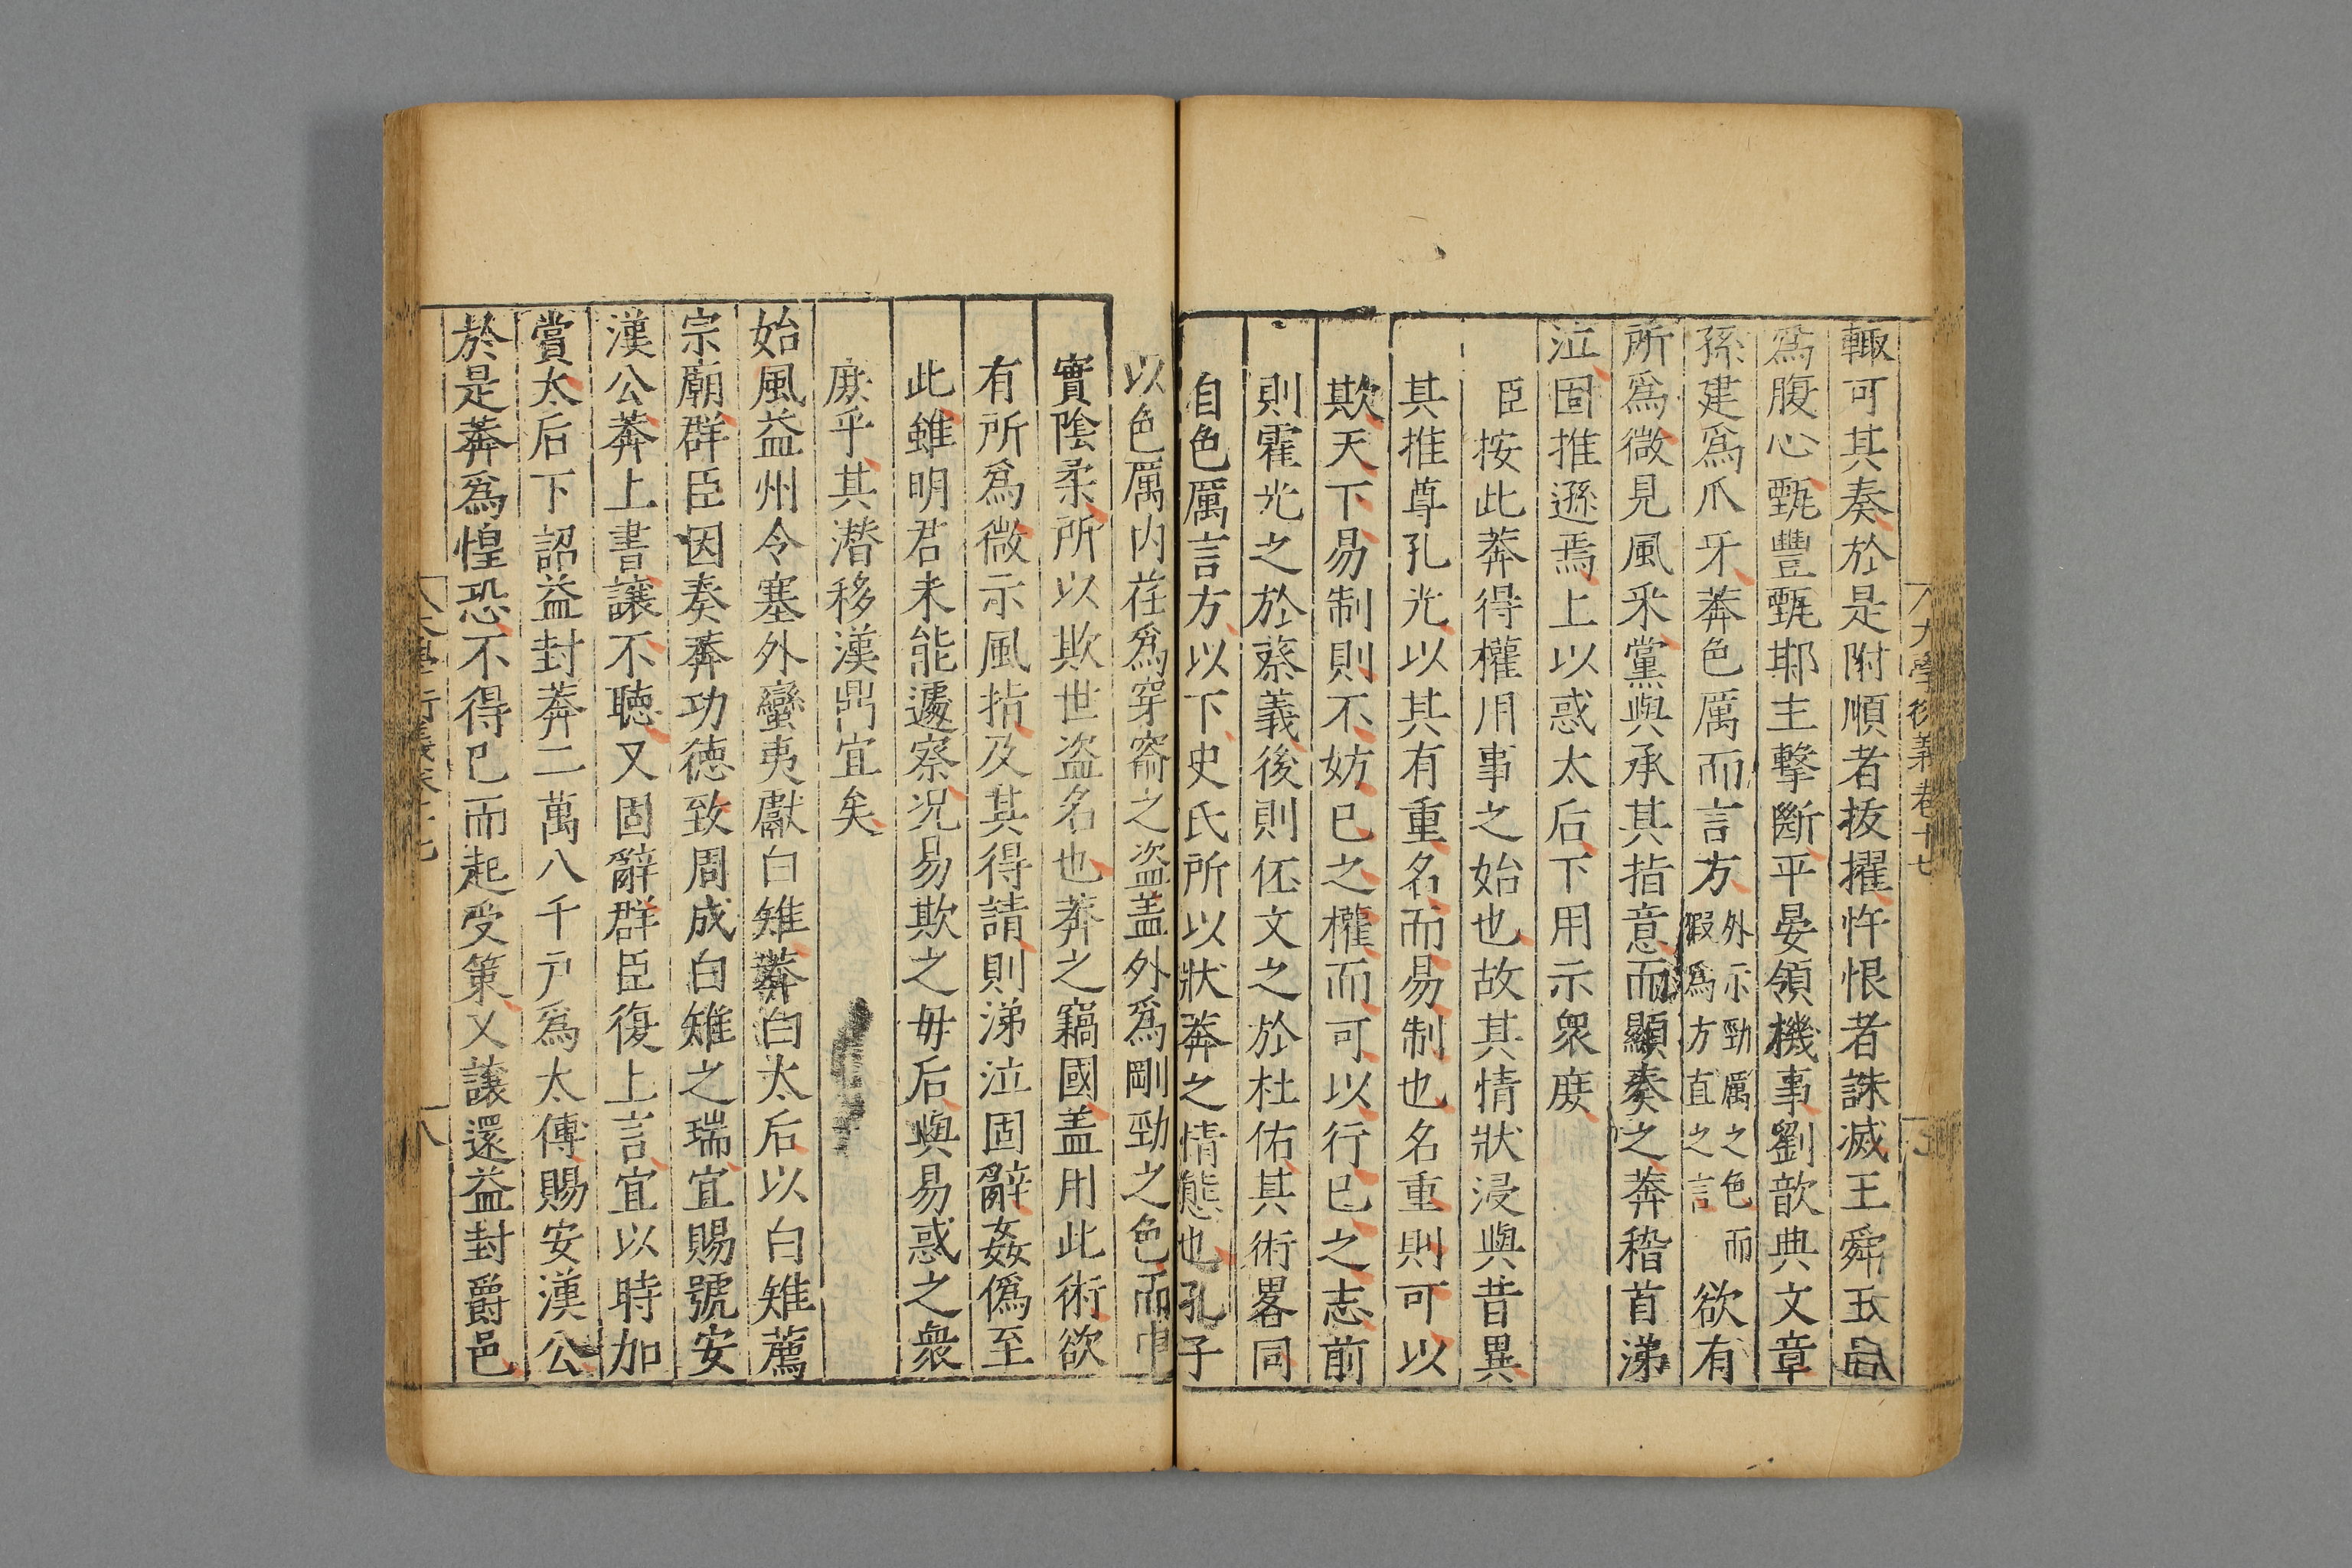 輙可其奏於是附順者拔擢忤恨者誅滅王舜王邑
爲腹心甄豐甄邯主擊斷平晏領機事劉歆典文章
孫建爲爪牙莾色厲而言方外示勁厲之色而假爲方直之言欲有
所爲微見風釆黨與承其指意而顯奏之莾稽首涕
泣固推遜焉上以惑太后下用示衆庻
臣按此莾得權用事之始也故其情狀浸與昔異
其推尊孔光以其有重名而易制也名重則可以
欺天下易制則不妨已之權而可以行已之志前
則霍光之於蔡義後則伾文之於杜佑其術畧同
自色厲言方以下史氏所以狀莾之情態也孔子
以色厲内荏爲穿窬之盗盖外爲剛勁之色而中
實陰柔所以欺世盗名也莾之竊國盖用此術欲
有所爲微示風指及其得請則涕泣固辭姦僞至
此雖明君未能遽察况易欺之毋后與易惑之衆
庻乎其潜移漢鼎宜矣
始風益州令塞外蠻夷獻白雉莾白太后以白雉薦
宗廟群臣因奏莾功徳致周成白雉之瑞宜賜號安
漢公莾上書讓不聴又固辭群臣復上言宜以時加
賞太后下詔益封莾二萬八千戸爲太傅賜安漢公
於是莾爲惶恐不得已而起受策又讓還益封爵邑
大學衍義卷十七
八